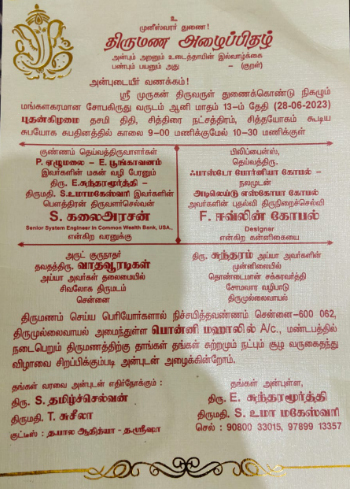 உ
முனீஸ்வரர் துணை!
திருமண அழைப்பிதழ்
அன்பும் அறனும் உடைத்தாயின் இல்வாழ்க்கை
பண்பும் பயனும் அது - (குறள்)
அன்புடையீர் வணக்கம்!
ஸ்ரீ முருகன் திருவருள் துணைக்கொண்டு நிகழும்
மங்களகரமான சோபகிருது வருடம் ஆனி மாதம் 13-ம் தேதி (28-06-2023)
புதன்கிழமை தசமி திதி, சித்திரை நட்சத்திரம், சித்தயோகம் கூடிய
சுபயோக சுபதினத்தில் காலை 9-00 மணிக்குமேல் 10-30 மணிக்குள்
குண்ணம் தெய்வத்திருவாளர்கள்
P. ஏழுமலை - E. பூங்காவனம்
இவர்களின் மகன் வழி பேரனும்
திரு. E.சுந்தரமூர்த்தி -
திருமதி. S.உமாமகேஸ்வரி இவர்களின்
பௌத்திரன் திருவளர்செல்வன்
S. கலைஅரசன்
Senior System Engineer in Common Wealth Bank, USA,
என்கிற வரனுக்கு
பிலிப்பைன்ஸ்,
தெய்வத்திரு.
ஃபாஸ்டோ மோர்னியா கோபல் -
நலமுடன்
அடிலெய்டு எஸ்கோபா கோபல்
அவர்களின் புதல்வி திருநிறைச்செல்வி
F. ஈவ்லின் கோபல்
Designer
என்கிற கன்னிகையை
அருட் குருநாதர்
தவத்திரு. வாதவூரடிகள்
அப்யா அவர்கள் தலைமையில்
சிவலோக திருமடம்
சென்னை
திரு. சுந்தரம் அப்பா அவர்களின்
முன்னிலையில்
தொண்டைமான் சக்கரவர்த்தி
சோமவார வழிபாடு
திருமுல்லைவாயல்
திருமணம் செய்ய பெரியோர்களால் நிச்சயித்தவண்ணம் சென்னை-600 062,
திருமுல்லைவாயல் அமைந்துள்ள பொன்னி மஹாலில் A/c., மண்டபத்தில்
நடைபெறும் திருமணத்திற்கு தாங்கள் தங்கள் சுற்றமும் நட்பும் சூழ வருகைதந்து
விழாவை சிறப்பிக்கும்படி அன்புடன் அழைக்கின்றோம்.
தங்கள் வரவை அன்புடன் எதிர்நோக்கும் :
திரு. S. தமிழ்ச்செல்வன்
திருமதி. T. சுசீலா
குட்டீஸ் : த.பாவ ஆதித்யா - த.ஸ்ரீஷா
தங்கள் அன்புள்ள,
திரு. E. சுந்தரமூர்த்தி
திருமதி. S. உமா மகேஸ்வரி
செல் : 90800 33015, 97899 13357